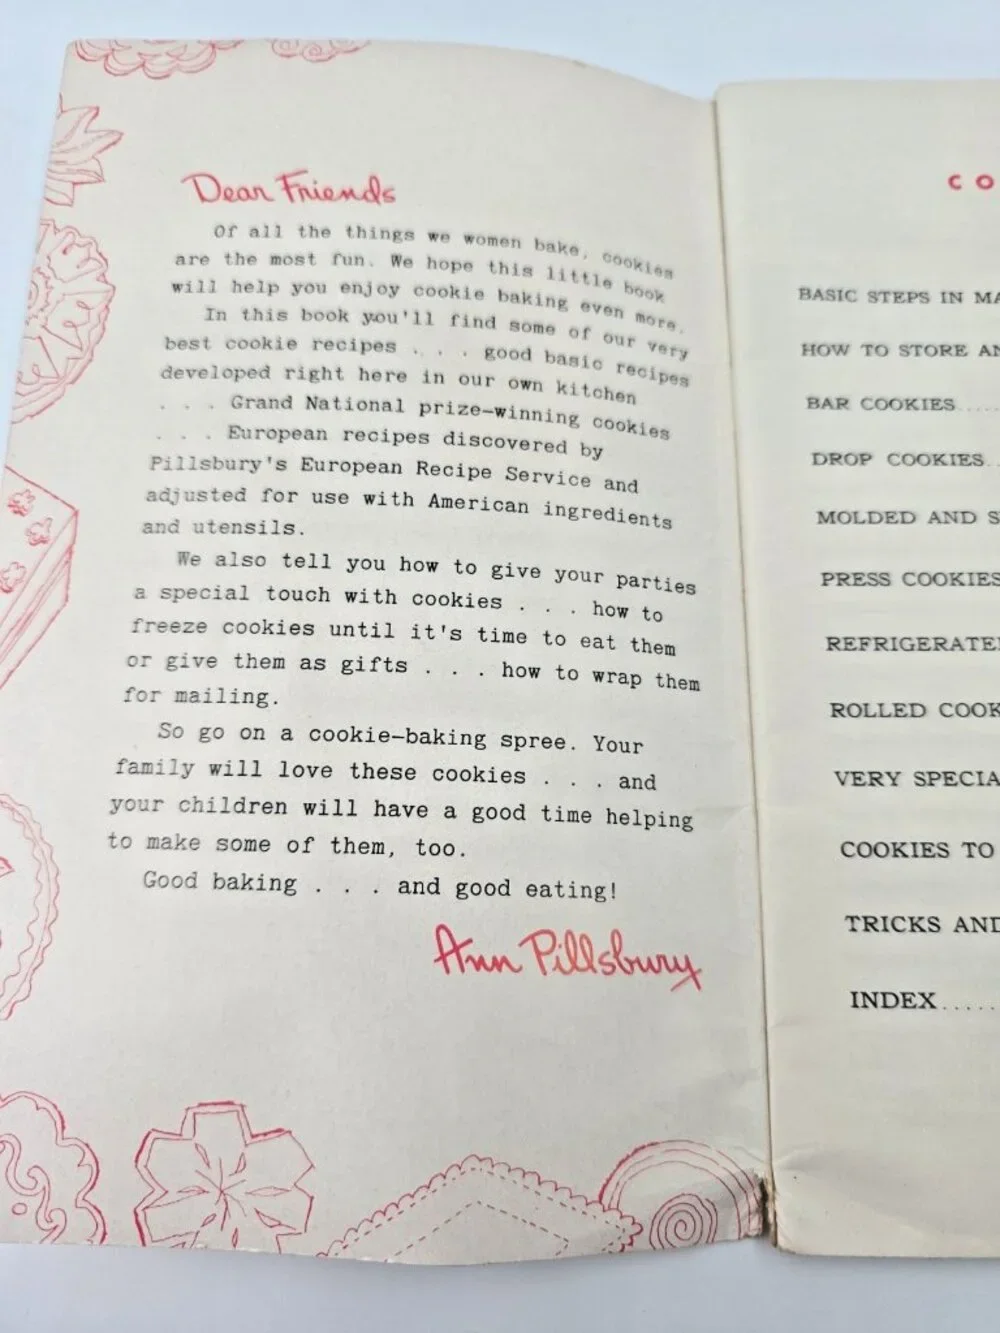 Dear Friends
Of all the things we women bake, cookies
are the most fun. We hope this little book
will help you enjoy cookie baking even more.
In this book you'll find some of our very
best cookie recipes . . . good basic recipes
developed right here in our own kitchen
. . . Grand National prize-winning cookies
. . . European recipes discovered by
Pillsbury's European Recipe Service and
adjusted for use with American ingredients
and utensils.
We also tell you how to give your parties
a special touch with cookies . . . how to
freeze cookies until it's time to eat them
or give them as gifts . . . how to wrap them
for mailing.
So go on a cookie-baking spree. Your
family will love these cookies . . . and
your children will have a good time helping
to make some of them, too.
Good baking . . . and good eating!
Ann Pillsbury
CO
BASIC STEPS IN MA
HOW TO STORE AN
BAR COOKIES.....
DROP COOKIES..
MOLDED AND S
PRESS COOKIES
REFRIGERATE
ROLLED COOK
VERY SPECIA
COOKIES TO
TRICKS AND
INDEX.....